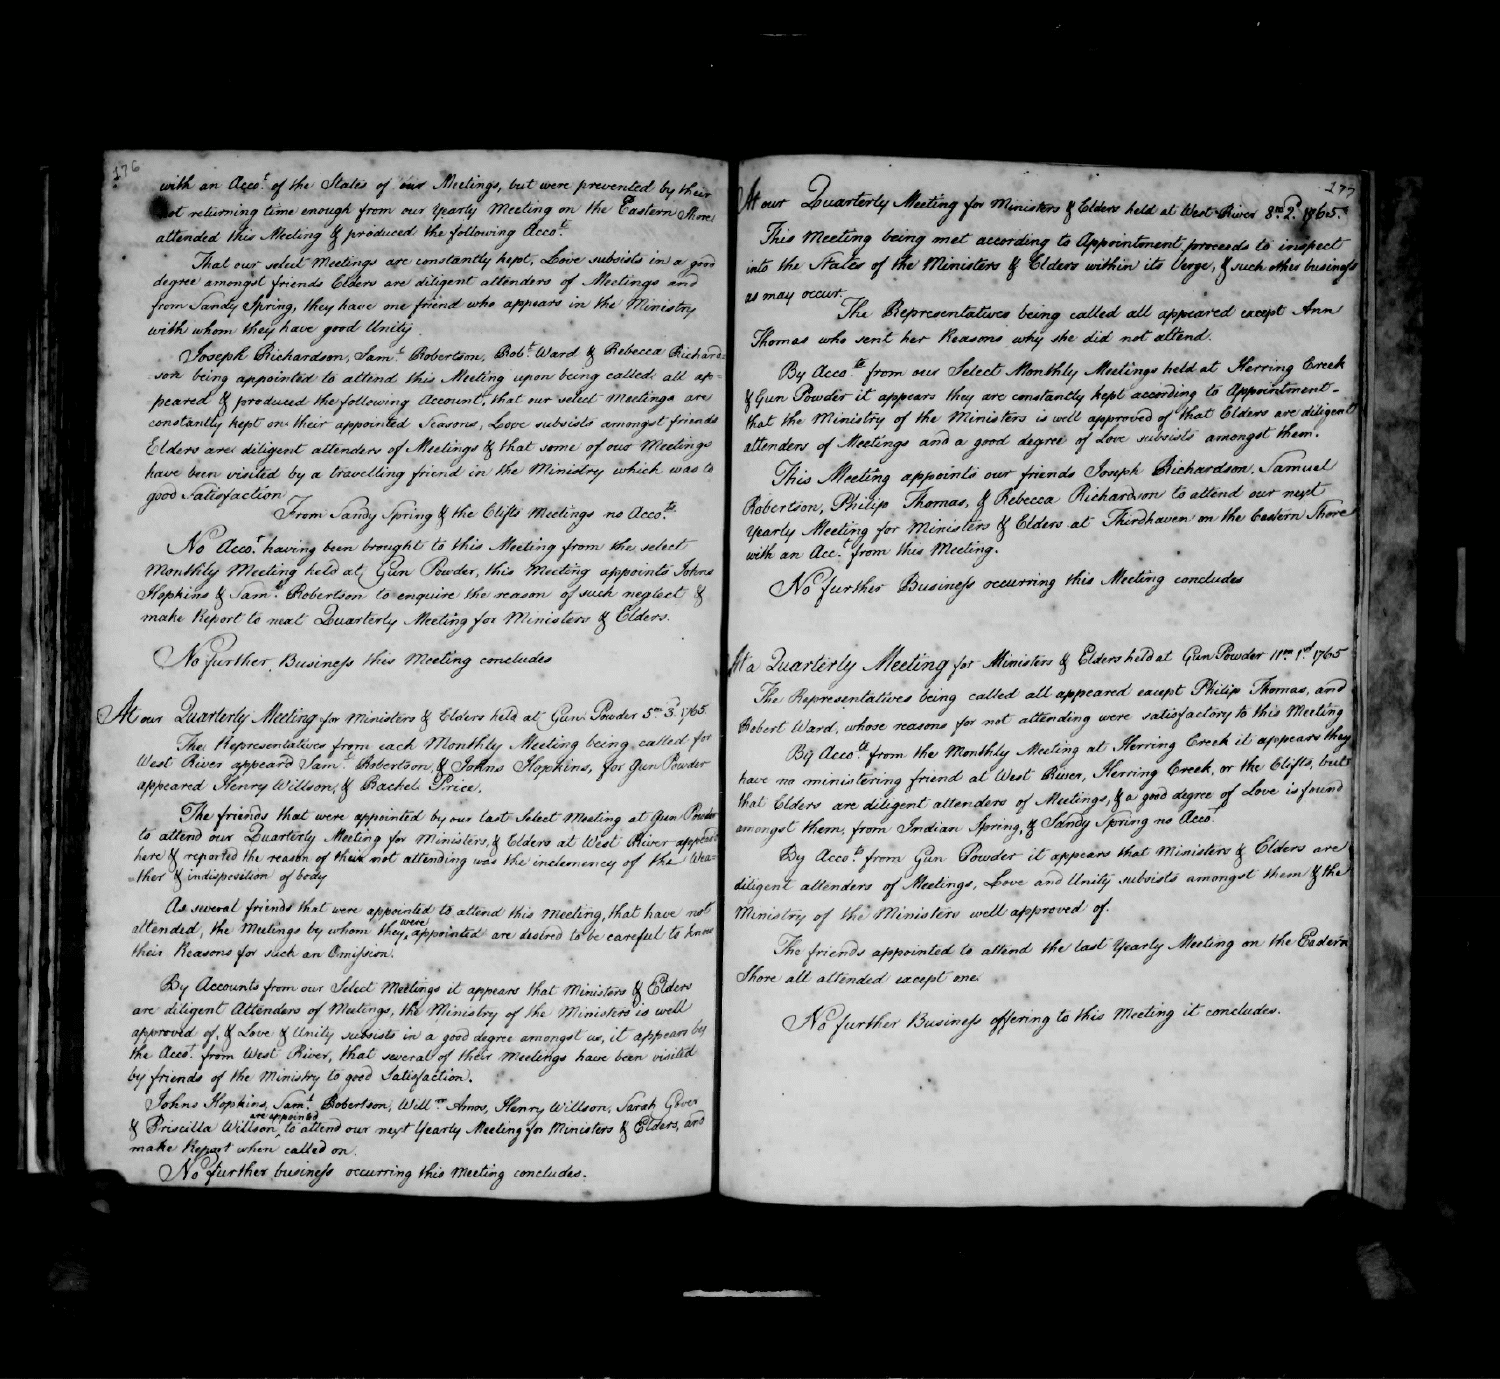 176
with an Acco.t of the States of our Meetings, but were prevented by their
not returning time enough from our Yearly Meeting on the Eastern Shore
attended this Meeting & produced the following Acco.ts
That our select Meetings are constantly kept, Love subsists in a good
degree amongst friends Elders are diligent attenders of Meetings and
from Sandy Spring, they have one friend who appears in the Ministry
with whom they have good Unity.
Joseph Richardson, Sam.l Robertson, Rob.t Ward & Rebecca Richard=
son being appointed to attend this Meeting upon being called all ap=
peared & produced the following Account, that our select Meetings are
constantly kept on their appointed Seasons, Love subsists amongst friends
Elders are diligent attenders of Meetings & that some of our Meetings
have been visited by a travelling friend in the Ministry which was to
good Satisfaction
From Sandy Spring & the Clifts Meetings no Acco.ts
No Acco.t having been brought to this Meeting from the select
Monthly Meeting held at Gun Powder, this Meeting appoints Johns
Hopkins & Sam.l Robertson to enquire the reason of such neglect &
make Report to next Quarterly Meeting for Ministers & Elders.
No further Business this Meeting concludes
At our Quarterly Meeting for Ministers & Elders held at Gun Powder 5.mo 3.d 1765.
The Representatives from each Monthly Meeting being called for
West River appeard Sam.l Robertson, & Johns Hopkins, for Gun Powder
appeared Henry Willson, & Rachel Price.
The friends that were appointed by our last Select Meeting at Gun Powder
to attend our Quarterly Meeting for Ministers, & Elders at West River appeard
here & reported the reason of their not attending was the inclemency of the Wea=
ther & indisposition of body
As several friends that were appointed to attend this Meeting, that have not
attended, the Meetings by whom they were appointed are desired to be careful to know
their Reasons for such an Omission.
By Accounts from our Select Meetings it appears that Ministers & Elders
are diligent Attenders of Meetings, the Ministry of the Ministers is well
approved of, & Love & Unity subsists in a good degree amongst us, it appears by
the Acco.t from West River, that several of their Meetings have been visited
by friends of the Ministry to good Satisfaction.
Johns Hopkins, Sam.l Robertson, Will.m Amos, Henry Willson, Sarah Gover
& Priscilla Willson are appointed to attend our next Yearly Meeting for Ministers & Elders, and
make Report when called on.
No further business occurring this Meeting concludes.
177
At our Quarterly Meeting for Ministers & Elders held at West River 8.mo 2.d 1765.
This Meeting being met according to Appointment proceeds to inspect
into the States of the Ministers & Elders within its Verge, & such other business
as may occur.
The Representatives being called all appeared except Ann
Thomas who sent her Reasons why she did not attend.
By Acco.ts from our Select Monthly Meetings held at Herring Creek
& Gun Powder it appears they are constantly kept according to Appointment-
that the Ministry of the Ministers is well approved of that Elders are diligent
attenders of Meetings and a good degree of Love subsists amongst them.
This Meeting appoints our friends Joseph Richardson, Samuel
Robertson, Philip Thomas, & Rebecca Richardson to attend our next
Yearly Meeting for Ministers & Elders at Thirdhaven on the Eastern Shore
with an Acc.t from this Meeting.
No further Business occurring this Meeting concludes
At a Quarterly Meeting for Ministers & Elders held at Gun Powder 11.mo 1.st 1765
The Representatives being called all appeared except Philip Thomas, and
Robert Ward, whose reasons for not attending were satisfactory to this Meeting
By Acco.ts from the Monthly Meeting at Herring Creek it appears they
have no ministering friend at West River, Herring Creek, or the Clifts, but
that Elders are diligent attenders of Meetings, & a good degree of Love is found
amongst them, from Indian Spring, & Sandy Spring no Acco.t
By Acco.ts from Gun Powder it appears that Ministers & Elders are
diligent attenders of Meetings, Love and Unity subsists amongst them & the
Ministry of the Ministers well approved of.
The friends appointed to attend the last Yearly Meeting on the Eastern
Shore all attended except one.
No further Business offering to this Meeting it concludes.